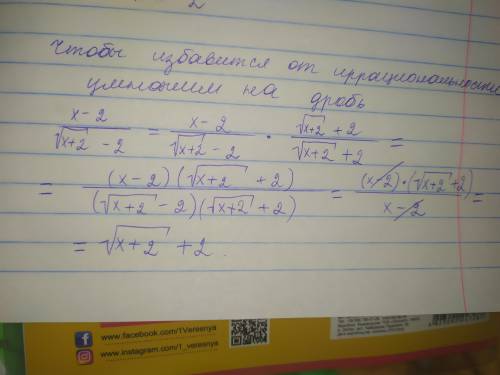 2
Чтобы избавится от иррациональности
умножим на дробь
x-2 / √x+2 - 2 = x-2 / √x+2 - 2 · √x+2 + 2 / √x+2 + 2 =
= (x-2)(√x+2 + 2) / (√x+2 - 2)(√x+2 + 2) = (x-2)·(√x+2 + 2) / x-2 =
= √x+2 + 2.
www.facebook.com/1Veresnya
www.instagram.com/1_veresnya